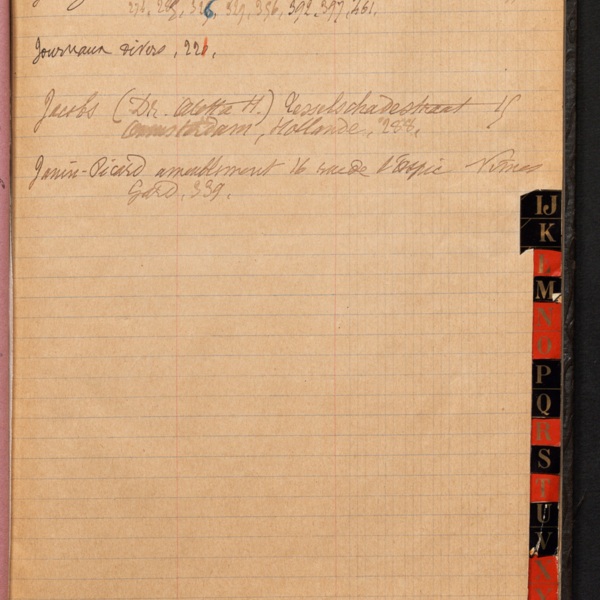 276, 329, 356, 392, 397, 461.
Journaux divers, 226.
Jacobs (Dr. Aletta H.) Tesselschadestraat 15
Amsterdam, Hollande, 288.
Janin-Picard ameublement 16 rue de l'Aspic Nîmes
Gard. 339.
IJ
K
L
M
N
O
P
Q
R
S
T
U
V